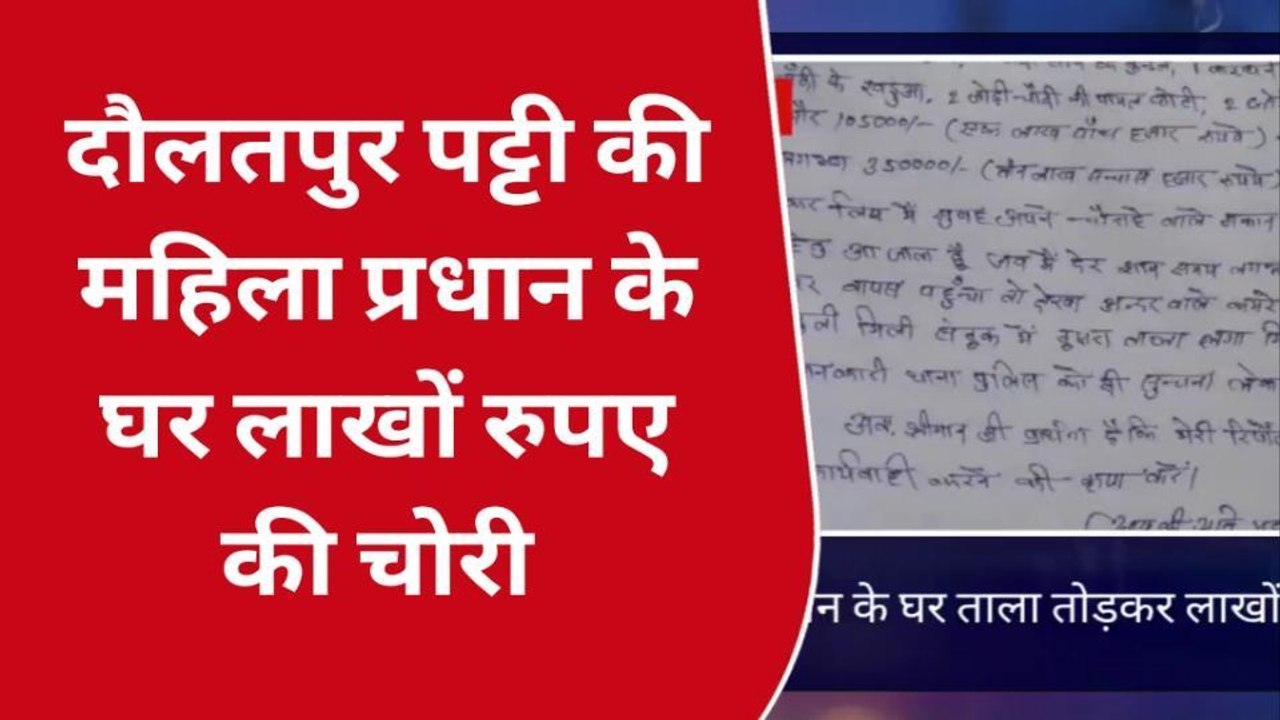 दौलतपुर पट्टी की
महिला प्रधान के
घर लाखों रुपए
की चोरी
के खडुआ, 2 जोड़ी चाँदी की पायल छोटी, 2
105000/- (एक लाख पाँच हजार रूपये)
350000/- (तीन लाख पचास हजार रूपये)
में सुबह अपने चौराहे वाले मकान
आ जाता हूँ जब मैं देर शाम समय
वापस पहुँचा तो देखा अन्दर वाले कमरे
मिली संदूक में दूसरा ताला लगा
थाना पुलिस को दी सूचना
अतः श्रीमान जी प्रार्थना है कि मेरी रिपोर्ट
कार्यवाही करने की कृपा करें।
न के घर ताला तोड़कर लाखों